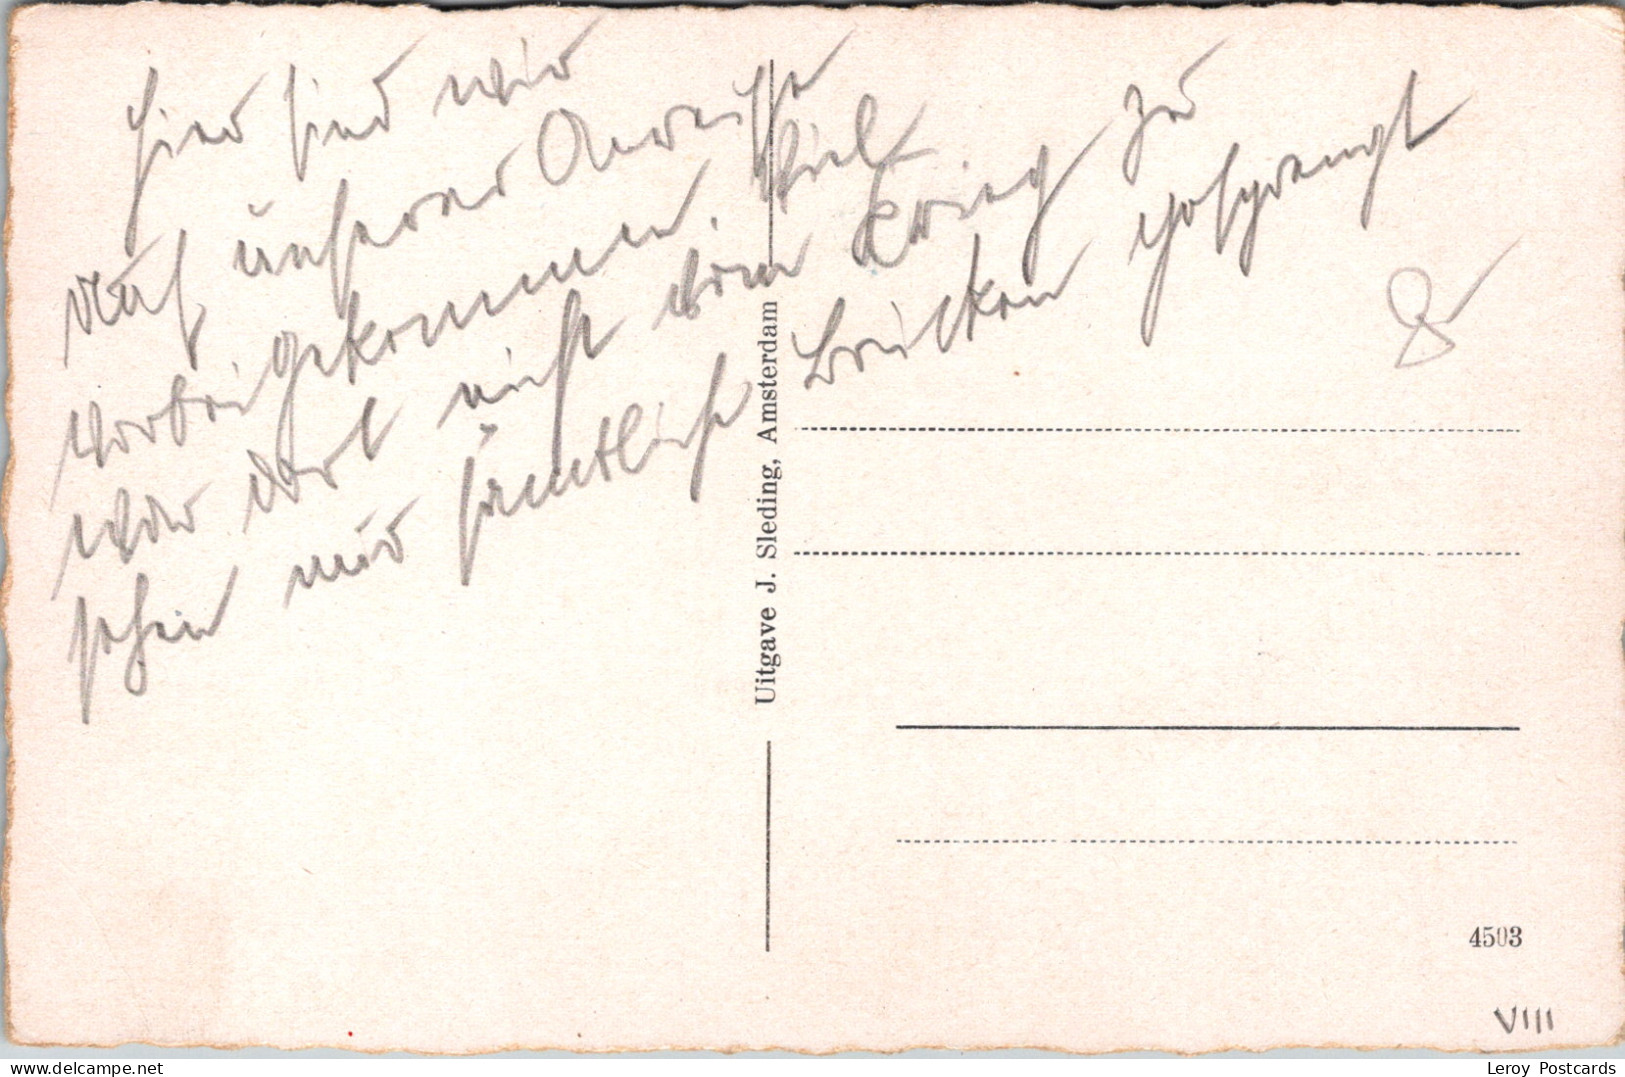 Hier sind wir
auf unserer Anreise
vorbei gekommen. Viel
war dort nicht vom Krieg zu
sehen nur sämtliche Brücken gesprengt
Uitgave J. Sleding, Amsterdam
4503
VIII
Leroy Postcards